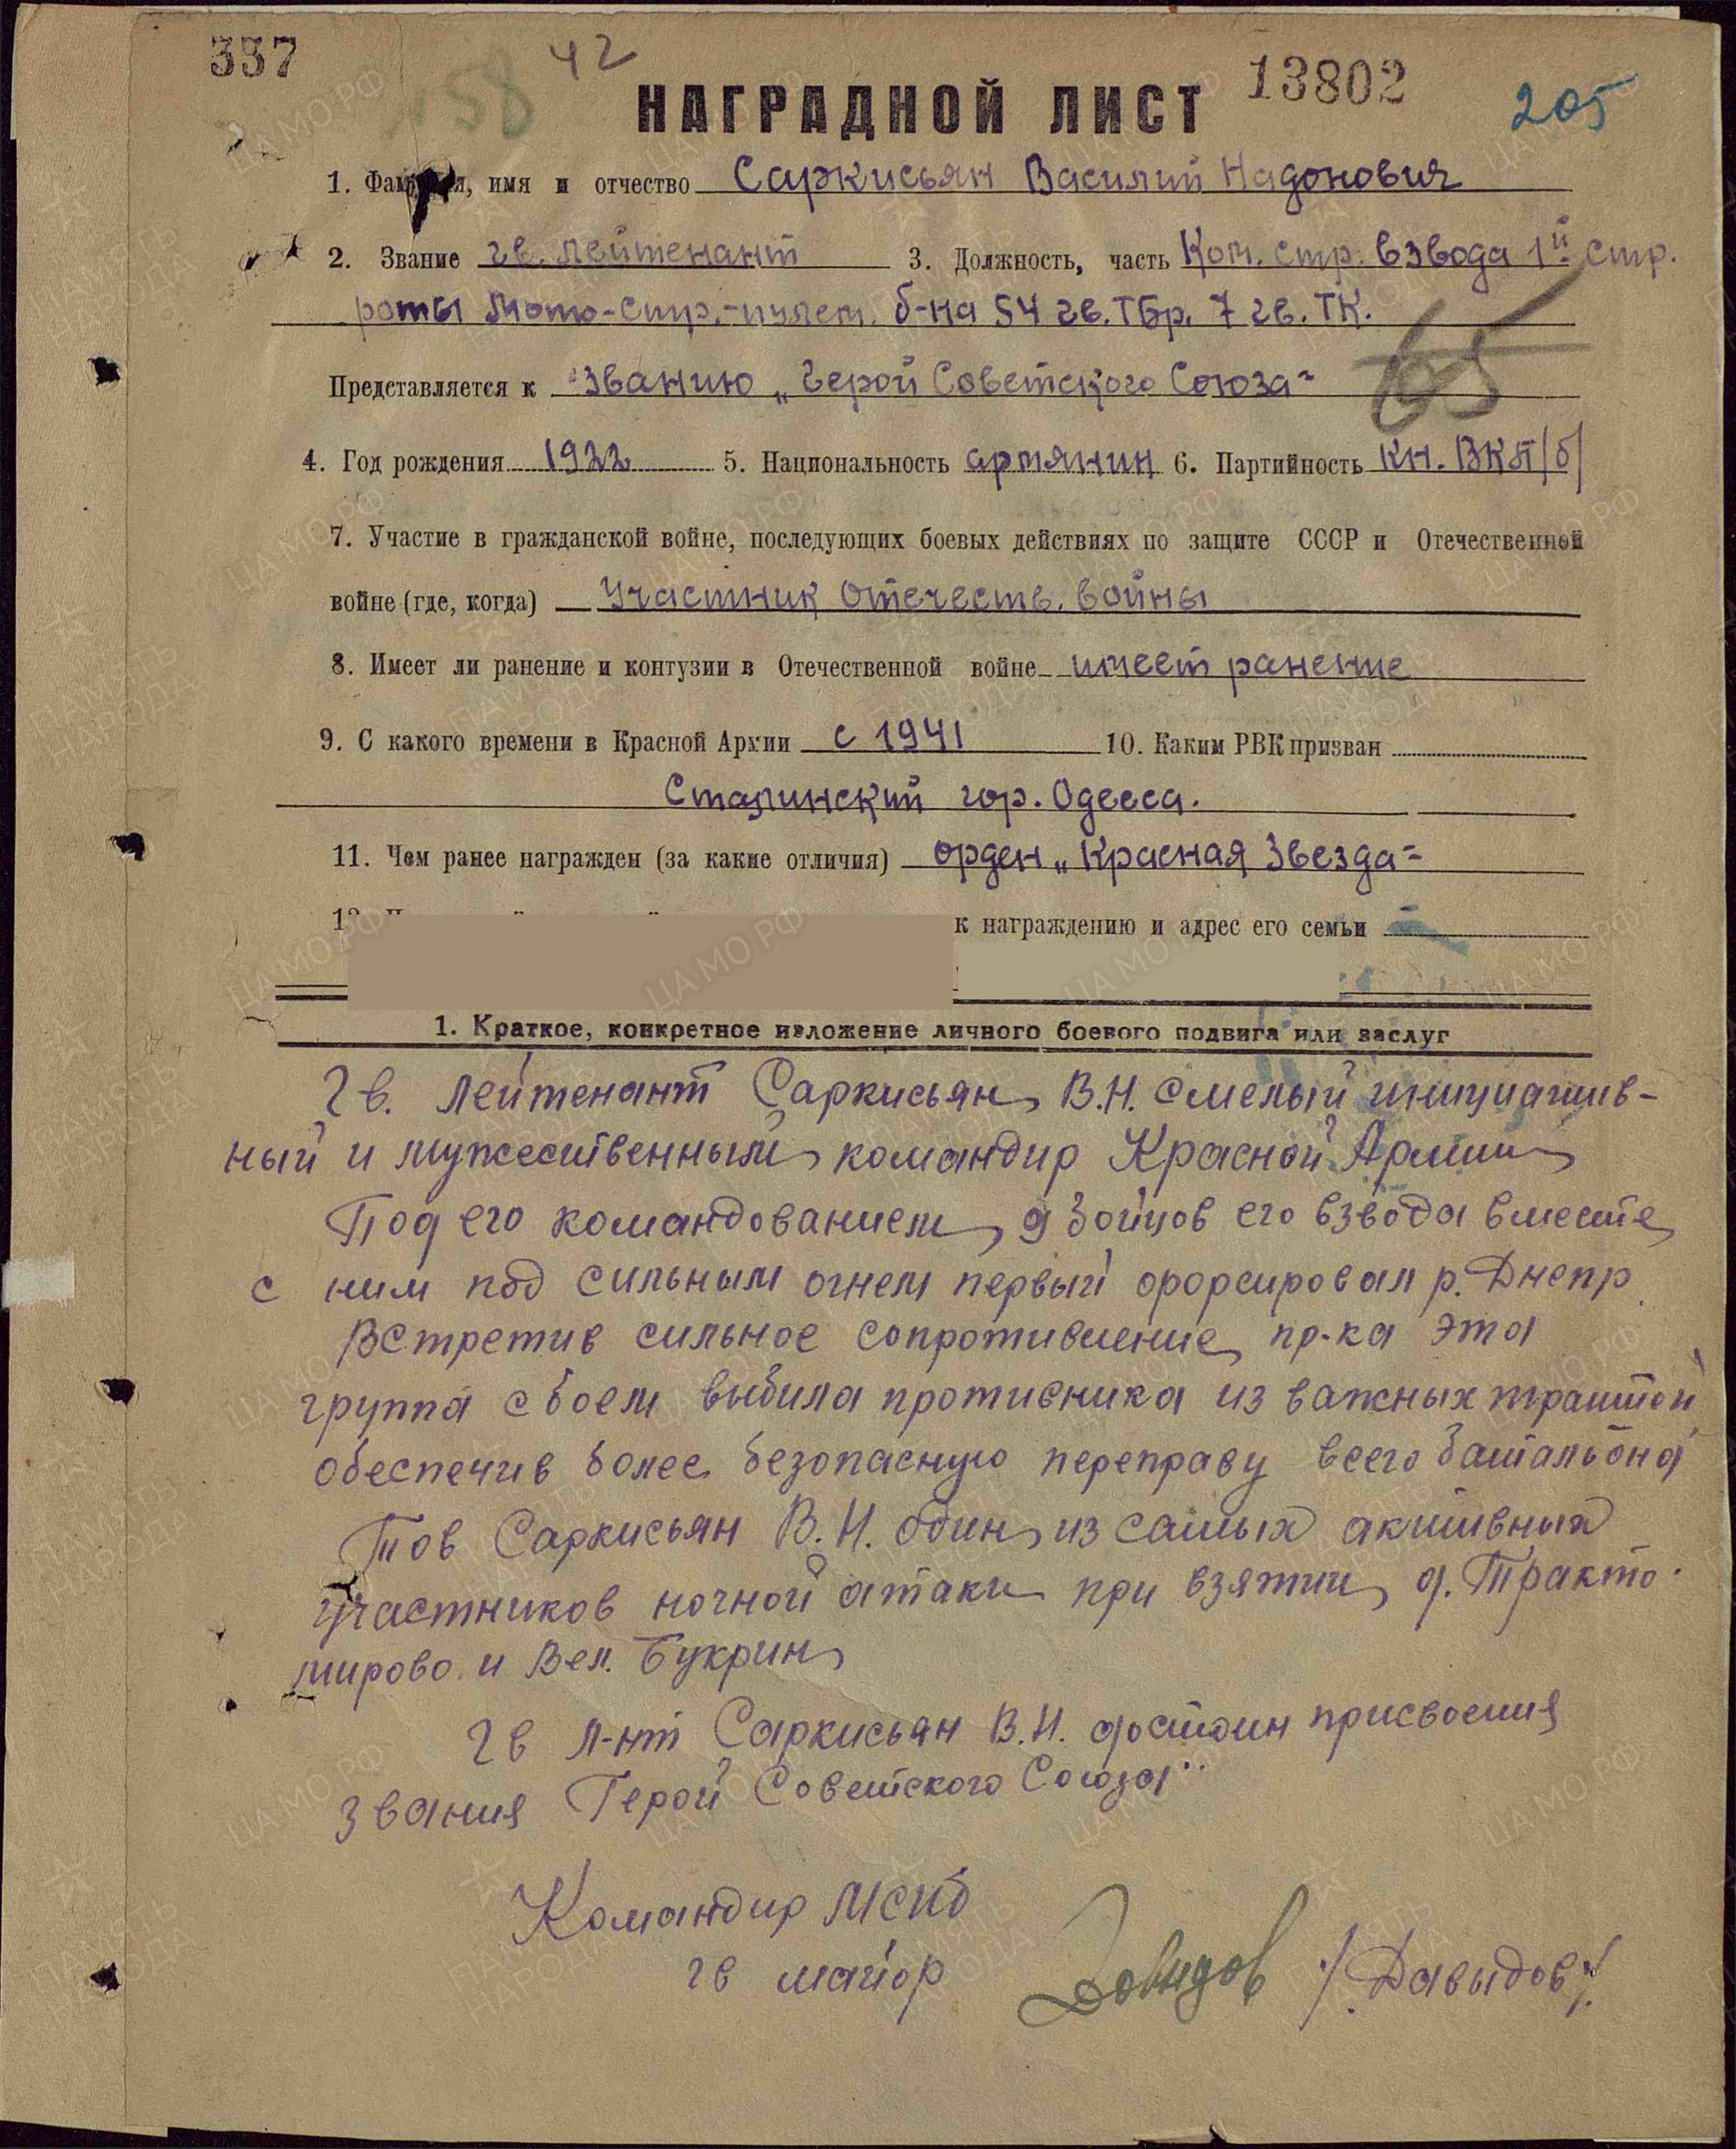 337
42
58
13802
205
НАГРАДНОЙ ЛИСТ
1. Фамилия, имя и отчество Саркисьян Василий Надонович
2. Звание гв. лейтенант 3. Должность, часть Ком. стр. взвода 1й стр.
роты Мото-стр.-пулем. б-на 54 гв. ТБр. 7 гв. ТК.
Представляется к званию „Герой Советского Союза"
4. Год рождения 1922 5. Национальность армянин 6. Партийность кн. ВКП/б/
7. Участие в гражданской войне, последующих боевых действиях по защите СССР и Отечественной
войне (где, когда) Участник Отечеств. войны
8. Имеет ли ранение и контузии в Отечественной войне имеет ранение
9. С какого времени в Красной Армии с 1941 10. Каким РВК призван
Сталинский гор. Одесса.
11. Чем ранее награжден (за какие отличия) орден „Красная Звезда"
к награждению и адрес его семьи
1. Краткое, конкретное изложение личного боевого подвига или заслуг
Гв. лейтенант Саркисьян В.Н. смелый инициатив-
ный и мужественный командир Красной Армии
Под его командованием 9 бойцов его взвода вместе
с ним под сильным огнем первый форсировал р. Днепр
Встретив сильное сопротивление пр-ка эта
группа с боем выбила противника из важных траншей
обеспечив более безопасную переправу всего батальона
Тов Саркисьян В.Н. один из самых активных
участников ночной атаки при взятии д. Тракто-
мирово и Вел. Букрин
Гв л-нт Саркисьян В.Н. достоин присвоения
звания Герой Советского Союза"
Командир МСПБ
гв майор Давидов /Давыдов/